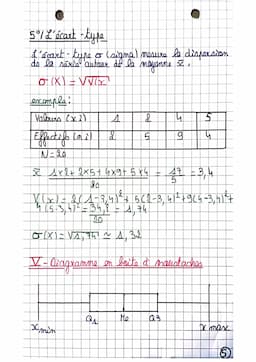 5°/ L'écart-type
L'écart-type σ (sigma) mesure la dispersion
de la série autour de la moyenne x̄.
σ(X) = √V(x)
exemple:
Valeurs (xi) 1 2 4 5
Effectifs (ni) 2 5 9 4
N = 20
x̄ 1×2+2×5+4×9+5×4 / 20 = 17/5 = 3,4
V(x) = 2(1-3,4)²+5(2-3,4)²+9(4-3,4)²+
4(5-3,4)² = 34,8/20 = 1,74
σ(X) = √1,74 ≃ 1,32
V - Diagramme en boîte à moustaches
x min Q1 Me Q3 x max
5